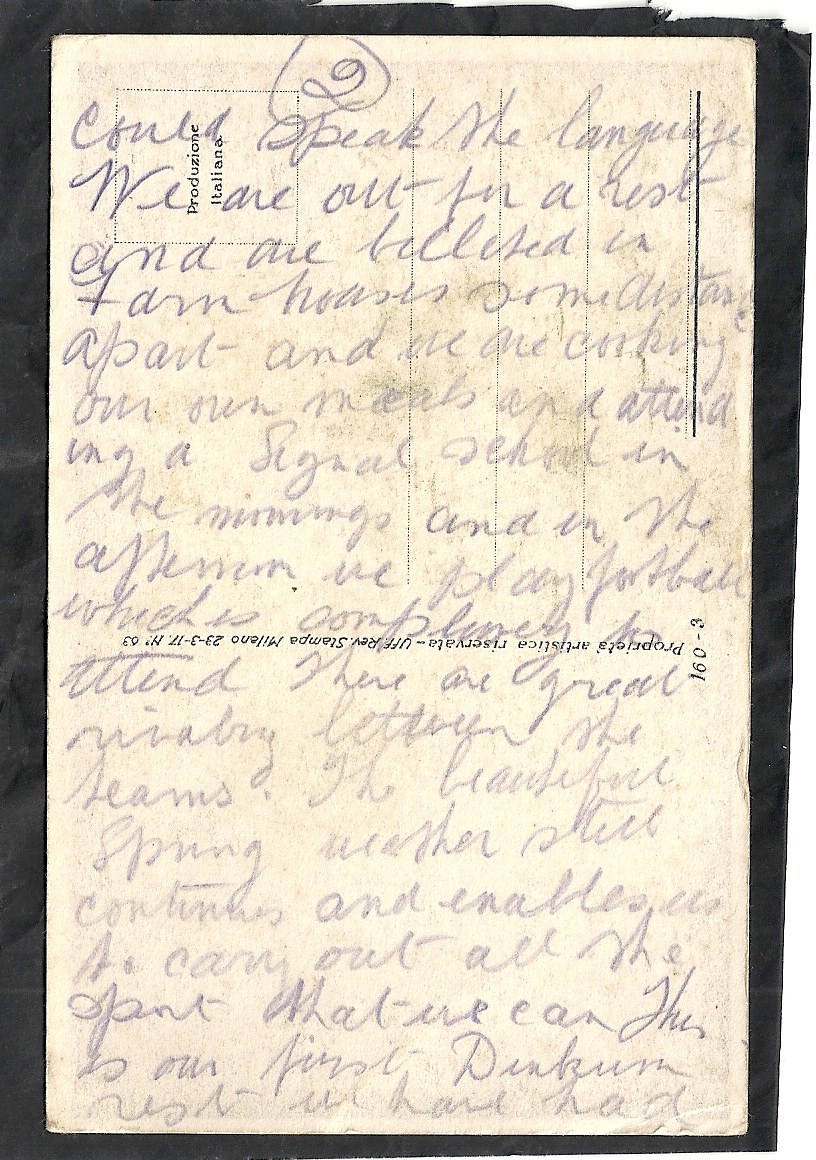 (2)
Could speak the language
Produzione
Italiana
We are out for a rest
and are billeted in
Farm houses some distanc
e
apart and we are cooking
our own meals and attend
ing a Signal school in
the mornings and in the
afternoon we play football
which is compulsory to
Proprietà artistica riservata - Uff. Rev. Stampa Milano 23-3-17. N° 63
160-3
attend There are great
rivalry between the
teams. The beautiful
Spring weather still
continues and enables us
to carry out all the
sport that we can This
is our first Dinkum
rest we have had